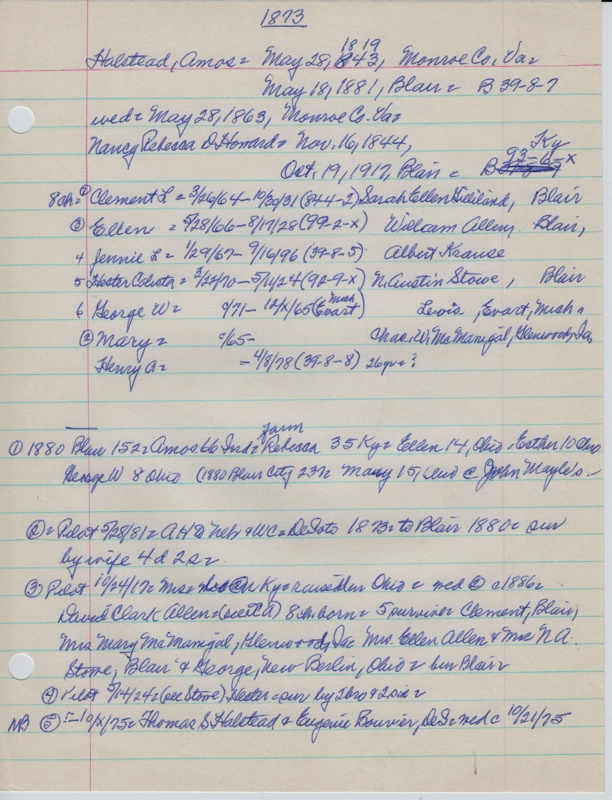 1873
1819
Halstead, Amos = May 28, 1843, Monroe Co, Va =
May 18, 1881, Blair = B 39-8-7
wed = May 28, 1863, Monroe Co. Va =
Nancy Rebecca D. Howard = Nov. 16, 1844, Ky
Oct. 19, 1917, Blair = B 93-6-x
8 ch = ① Clement L = 3/26/64 - 10/30/31 (844-2) Sarah Ellen Gilliland, Blair
③ Ellen = 5/28/66 - 8/17/28 (99-2-x) William Allen, Blair,
4 Jennie L = 1/29/67 - 9/16/96 (39-8-5) Albert Krause
5 Hester = 3/22/70 - 5/11/24 (92-9-x) N. Austin Stowe, Blair
6 George W = c/71 - 12/x/65 (Evart Mich) Lewis, Evart, Mich =
② Mary = c/65 - Chas. W. McManigal, Glenwood, Ia,
Henry A = = 4/8/78 (39-8-8) 26 yr = ?
① 1880 Blair 152 = Amos 66 Ind = farm Rebecca 35 Ky = Ellen 14, Ohio = Esther 10 Ohio
George W 8 Ohio (1880 Blair City 232 = Mary 15, Ohio @ John Maylo's -
② = Pilot 5/28/81 = A H to Neb & WC = DeSoto 1873 = to Blair 1880 = sur
by wife 4 d 2 s =
③ Pilot 10/24/17 = Mrs = Ky = raised in Ohio = wed c 1886 =
David Clark Allen = 8 ch born = 5 survive Clement, Blair,
Mrs Mary McManigal, Glenwood, Ia Mrs. Ellen Allen & Mrs N A
Stowe, Blair & George, New Berlin, Ohio = bur Blair
④ Pilot 5/14/24 = (see Stowe) Hester = sur by 2 bro & 2 sis =
MB ⑤ = -10/x/75 = Thomas S Halstead & Eugenie Bouvier, DeS = wed c 10/21/75